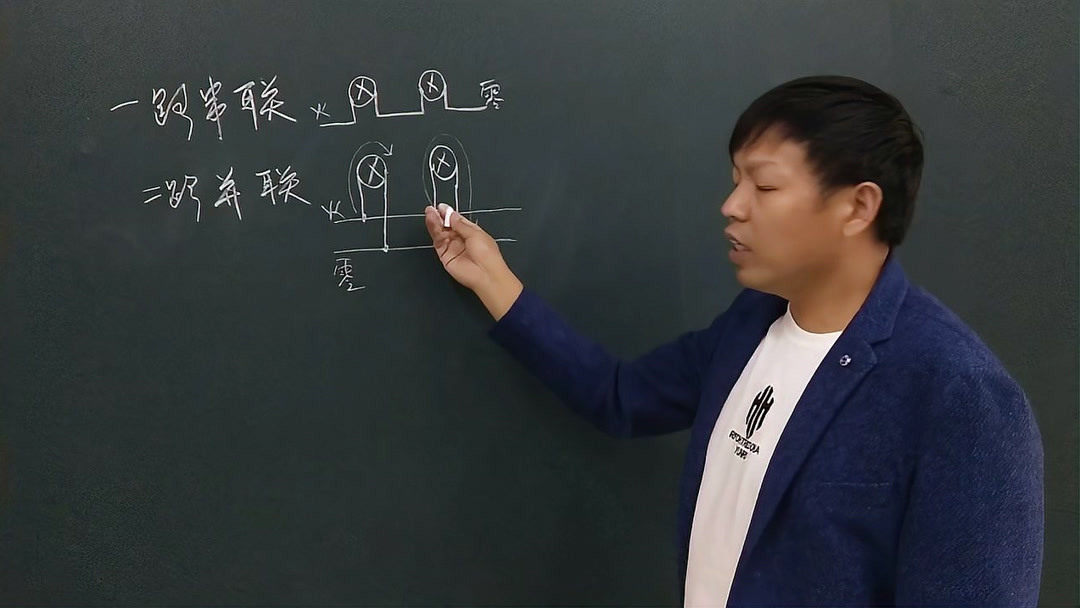 一路串联 火 零
二路并联 火
零
HH